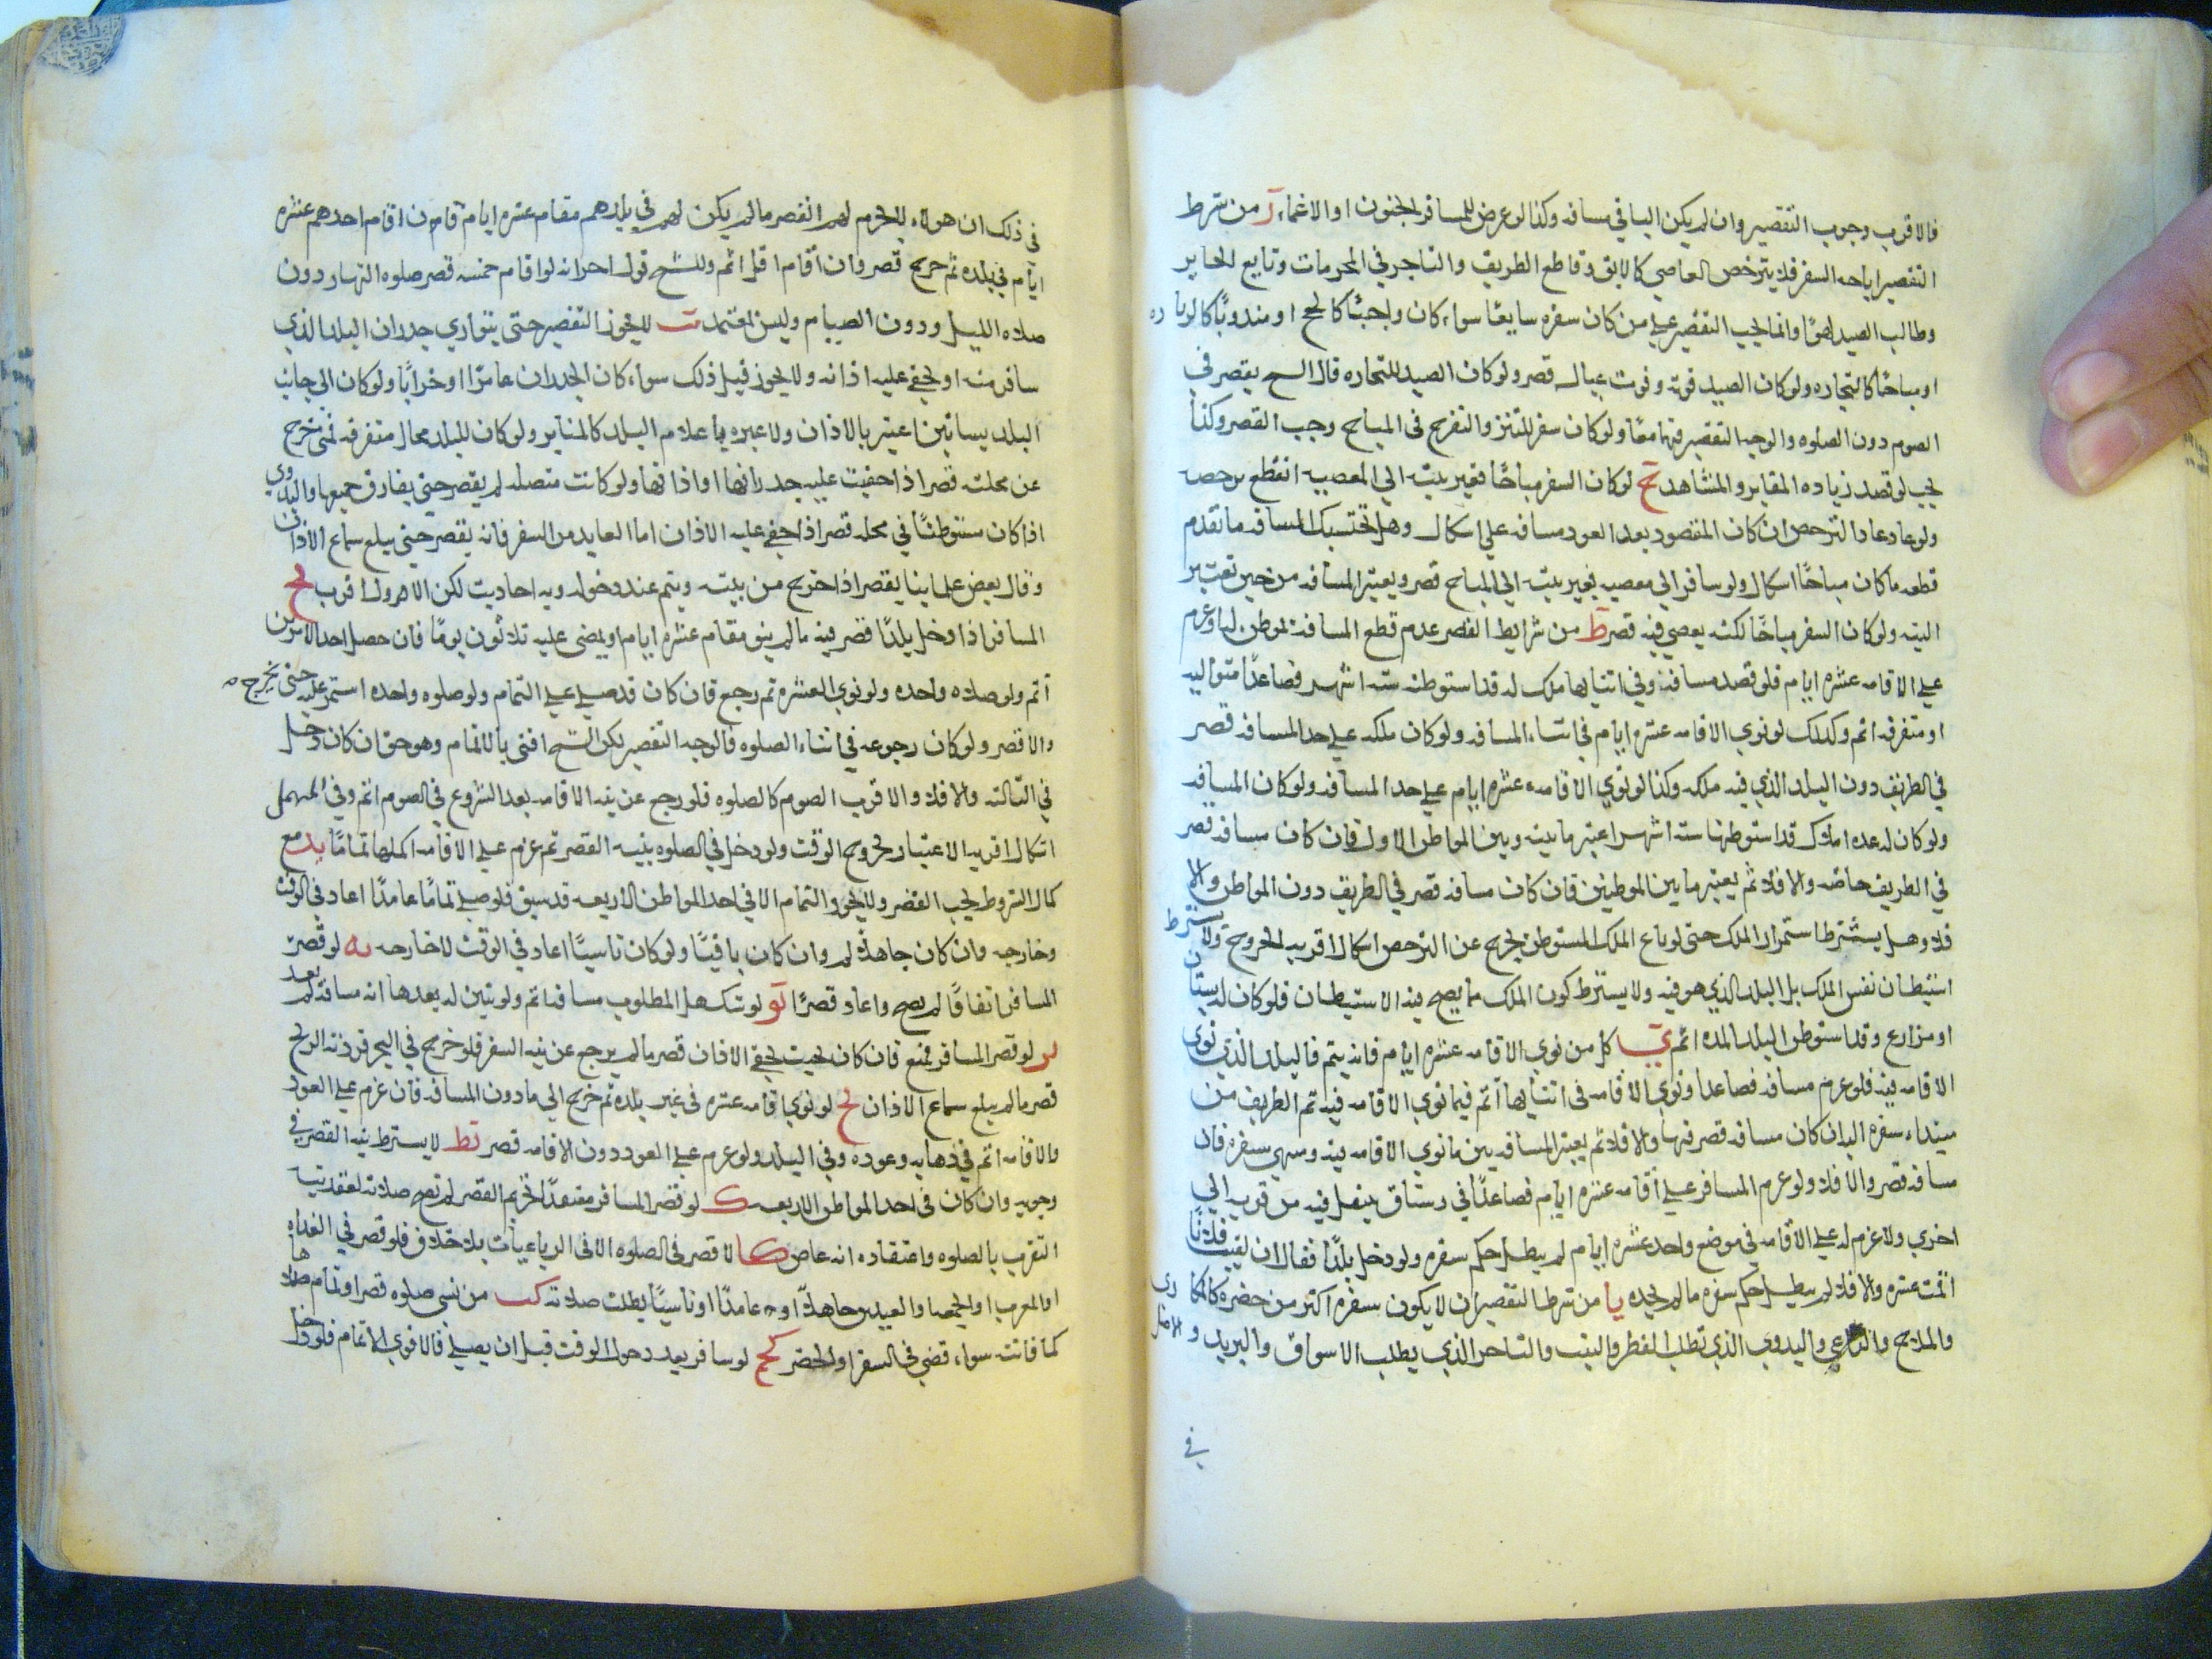 فالاقرب وجوب التقصير وان لم يكن الباقي مسافه وكذا لو عرض للمسافر الجنون او الاغماء ز من شرط
التقصير اباحه السفر فلا يترخص العاصي كالابق وقاطع الطريق والتاجر في المحرمات وتابع الجاير
وطالب الصيد لهوًا وانما يجب التقصير علي من كان سفره سايغًا سواء كان واجبًا كالحج او مندوبًا كالزياره
او مباحًا كالتجاره ولو كان الصيد لقوته وقوت عياله قصر ولو كان الصيد للتجاره قال الشيخ يقصر في
الصوم دون الصلوه والوجه التقصير فيهما معًا ولو كان سفر للتنزه والتفرج في المباح وجب القصر وكذا
يجب لو قصد زياده المقابر والمشاهد ح لو كان السفر مباحًا فغير نيته الي المعصيه انقطع ترخصه
ولو عاد عاد الترخص ان كان المقصود بعد العود مسافه علي اشكال وهل تحتسب المسافه ما تقدم
قطعه ما كان مباحًا اشكال ولو سافر الي معصيه فغير نيته الي المباح قصر ويعتبر المسافه من حين تغير
النيه ولو كان السفر مباحًا لكنه يعصي فيه قصر ط من شرايط القصر عدم قطع المسافه بموطن لها وعزم
علي الاقامه عشره ايام فلو قصد مسافه وفي اثنايها ملك له قد استوطنه سته اشهر فصاعدًا متواليه
او متفرقه اتم وكذلك لو نوي الاقامه عشره ايام في اثناء المسافه ولو كان ملكه علي حد المسافه قصر
في الطريق دون البلد الذي فيه ملكه وكذا لو نوي الاقامه عشره ايام علي حد المسافه ولو كان المسافه
ولو كان له عده املاك قد استوطنها سته اشهر اعتبر ما بينه وبين المواطن الاول فان كان مسافه قصر
في الطريق خاصه والا فلا ثم يعتبر ما بين الموطنين فان كان مسافه قصر في الطريق دون المواطن والا
فلا وهل يشترط استمرار الملك حتي لو باع الملك المستوطن يخرج عن الترخص اشكال اقربه الخروج ولا يشترط
استيطان نفس الملك بل البلد الذي هو فيه ولا يشترط كون الملك مما يصح فيه الاستيطان فلو كان له بستان
او مزارع وقد استوطن البلد المده اتم ي كل من نوي الاقامه عشره ايام فانه يتم في البلد الذي نوي
الاقامه فيه فلو عزم مسافه فصاعدا ونوي الاقامه في اثنايها اتم فيما نوي الاقامه فيه ثم الطريق من
مبتداء سفره اليه ان كان مسافه قصر فيها والا فلا ثم يعتبر المسافه بين ما نوي الاقامه فيه ومنتهي سفره فان
مسافه قصر والا فلا ولو عزم المسافر علي اقامه عشره ايام فصاعدًا في رستاق ينتقل فيه من قريه الي
اخري ولا عزم له علي الاقامه في موضع واحد عشره ايام لم يبطل حكم سفره ولو دخل بلدًا فقال ان لقيت فلانًا
اقمت عشره والا فلا لم يبطل حكم سفره ما لم يجده يا من شرط التقصير ان لا يكون سفره اكثر من حضره كالمكاري
والملاح والراعي والبدوي الذي يطلب القطر والنبت والتاجر الذي يطلب الاسواق والبريد و الاصل
في
في ذلك ان هولاء يلزم لهم القصر ما لم يكن لهم في بلدهم مقام عشره ايام فان اقام احدهم عشره
ايام في بلده ثم خرج قصر وان اقام اقل اتم وللشيخ قول اخر انه لو اقام خمسه قصر صلوه النهار دون
صلاه الليل ودون الصيام وليس بمعتمد يب لا يجوز التقصير حتي يتواري جدران البلد الذي
سافر منه او يخفي عليه اذانه ولا يجوز قبل ذلك سواء كان الجدران عامرًا او خرابًا ولو كان الي جانب
البلد بساتين اعتبر بالاذان ولا عبره باعلام البلد كالمناير ولو كان للبلد محال متفرقه فمتي خرج
عن محلته قصر اذا خفيت عليه جدرانها او اذانها ولو كانت متصله لم يقصر حتي يفارق جميعها والبدوي
اذا كان مستوطنًا في محله قصر اذا خفي عليه الاذان اما العايد من السفر فانه يقصر حتي يبلغ سماع الاذان
وقال بعض علماينا يقصر اذا خرج من بيته ويتم عند دخوله وبه احاديث لكن الاول اقرب يج
المسافر اذا دخل بلدًا قصر فيه ما لم ينو مقام عشره ايام او يمضي عليه ثلاثون يومًا فان حصل احد الامرين
اتم ولو صلاه واحده ولو نوي العشره ثم رجع فان كان قد صلي علي التمام ولو صلوه واحده استمر عليه حتي يخرج
والا قصر ولو كان رجوعه في اثناء الصلوه فالوجه التقصير لكن الشيخ افتي بالاتمام وهو حق ان كان دخل
في الثالثه والا فلا والاقرب الصوم كالصلوه فلو رجع عن نيه الاقامه بعد الشروع في الصوم اتم وفي المهمل
اشكال اقربه الاعتبار بخروج الوقت ولو دخل في الصلوه بنيه القصر ثم عزم علي الاقامه اكملها تمامًا يد مع
كمال الشروط يجب القصر ولا يجوز التمام الا في احد المواطن الاربعه قد سبق فلو صلي تمامًا عامدًا اعاد في الوقت
وخارجه وان كان جاهلا لم وان كان باقيًا ولو كان ناسيًا اعاد في الوقت لا خارجه يه لو قصر
المسافر اتفاقًا لم يصح واعاد قصرًا يو لو شك هل المطلوب مسافه اتم ولو تبين له بعدها انه مسافه لم يعد
يز لو قصر المسافر فمنع فان كان بحيث يخفي الاذان قصر ما لم يرجع عن نيه السفر فلو خرج في البحر فردته الريح
قصر ما لم يبلغ سماع الاذان يح لو نوي اقامه عشره في غير بلده ثم خرج الي ما دون المسافه فان عزم علي العود
والاقامه اتم في ذهابه وعوده وفي البلد ولو عزم علي العود دون الاقامه قصر يط لا يشترط نيه القصر في
وجوبه وان كان في احد المواطن الاربعه ك لو قصر المسافر معتقدًا تحريم القصر لم تصح صلاته لفقد نيه
التقرب بالصلوه واعتقاده انه عاص كا لا قصر في الصلوه الا في الرباعيات بلا خلاف فلو قصر في الغداه
او المغرب او الجمعه او العيدين جاهلا او عامدًا او ناسيًا بطلت صلاته كب من نسي صلوه قصر او تمام صلاها
كما فاتت سواء قضي في السفر او الحضر كج لو سافر بعد دخول الوقت قبل ان يصلي فالاقوي الاتمام فلو دخل